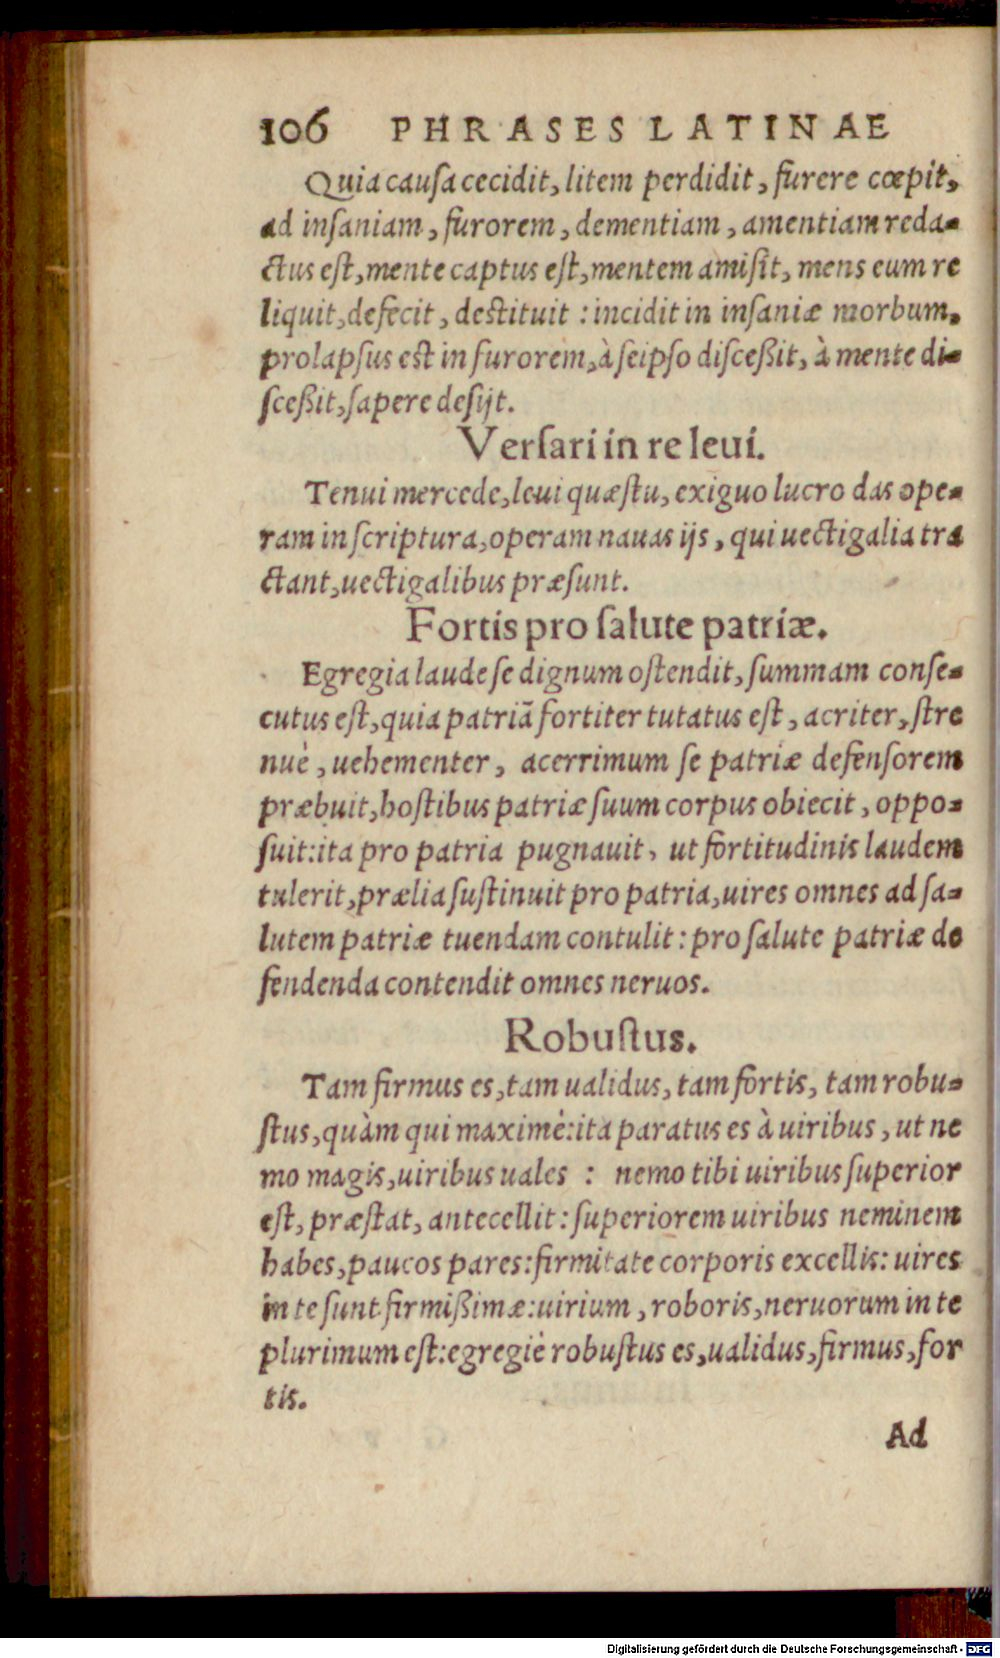 106 PHRASES LATINAE
Quia cauſa cecidit, litem perdidit, furere cœpit,
ad inſaniam, furorem, dementiam, amentiam reda-
ctus eſt, mente captus eſt, mentem amiſit, mens eum re
liquit, defecit, deſtituit : incidit in inſaniæ morbum,
prolapſus est in furorem, à ſeipſo diſceßit, à mente di-
ſceßit, ſapere deſijt.
Verſari in re leui.
Tenui mercede, leui quæſtu, exiguo lucro das ope-
ram in ſcriptura, operam nauas ijs, qui uectigalia tra
ctant, uectigalibus præſunt.
Fortis pro ſalute patriæ.
Egregia laude ſe dignum oſtendit, ſummam conſe-
cutus eſt, quia patriã fortiter tutatus eſt, acriter, ſtre
nuè, uehementer, acerrimum ſe patriæ defenſorem
præbuit, hoſtibus patriæ ſuum corpus obiecit, oppo-
ſuit: ita pro patria pugnauit, ut fortitudinis laudem
tulerit, prælia ſuſtinuit pro patria, uires omnes ad ſa-
lutem patriæ tuendam contulit : pro ſalute patriæ de
fendenda contendit omnes neruos.
Robuſtus.
Tam firmus es, tam ualidus, tam fortis, tam robu-
ſtus, quàm qui maximè: ita paratus es à uiribus, ut ne
mo magis, uiribus uales : nemo tibi uiribus ſuperior
eſt, præſtat, antecellit : ſuperiorem uiribus neminem
habes, paucos pares: firmitate corporis excellis: uires
in te ſunt firmißimæ: uirium, roboris, neruorum in te
plurimum eſt: egregiè robuſtus es, ualidus, firmus, for
tis.
Ad
Digitalisierung gefördert durch die Deutsche Forschungsgemeinschaft - DFG